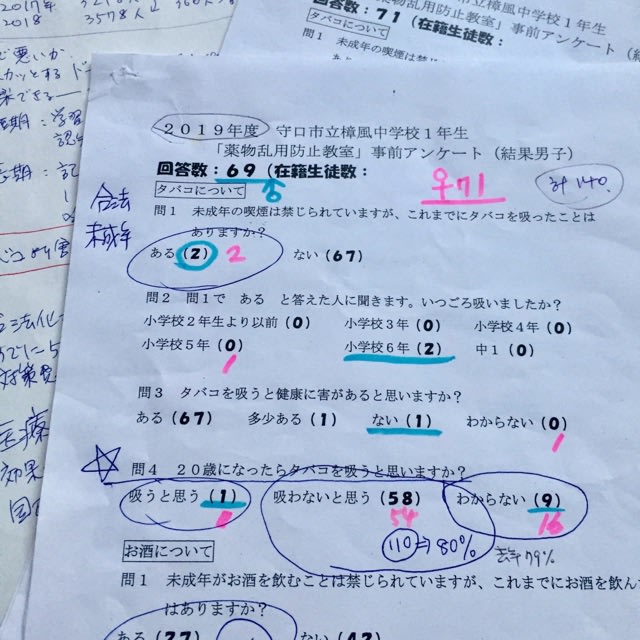 2017年
2018 3578人
市立樟風中学校1年生
薬物乱用防止教室」事前アンケート（結
回答数：71（在籍生徒数：
タバコについて
問1 未成年の喫煙は禁じ
2019年度 守口市立樟風中学校1年生
「薬物乱用防止教室」事前アンケート（結果男子）
回答数：69（在籍生徒数：
♂ ♀71 計140
合法
未成年
タバコについて
問1 未成年の喫煙は禁じられていますが、これまでにタバコを吸ったことは
ありますか？
ある（2） 2 ない（67）
問2 問1で ある と答えた人に聞きます。いつごろ吸いましたか？
小学校2年生より以前（0） 小学校3年（0） 小学校4年（0）
小学校5年（0） 小学校6年（2） 中1（0）
1
問3 タバコを吸うと健康に害があると思いますか？
ある（67） 多少ある（1） ない（1） わからない（0）
1
問4 20歳になったらタバコを吸うと思いますか？
吸うと思う（1） 吸わないと思う（58） わからない（9）
54 16
110⇒80%
去年79%
お酒について
問1 未成年がお酒を飲むことは禁じられていますが、これまでにお酒を飲ん
はありますか？
ある（27） ない（42）
医療
効果